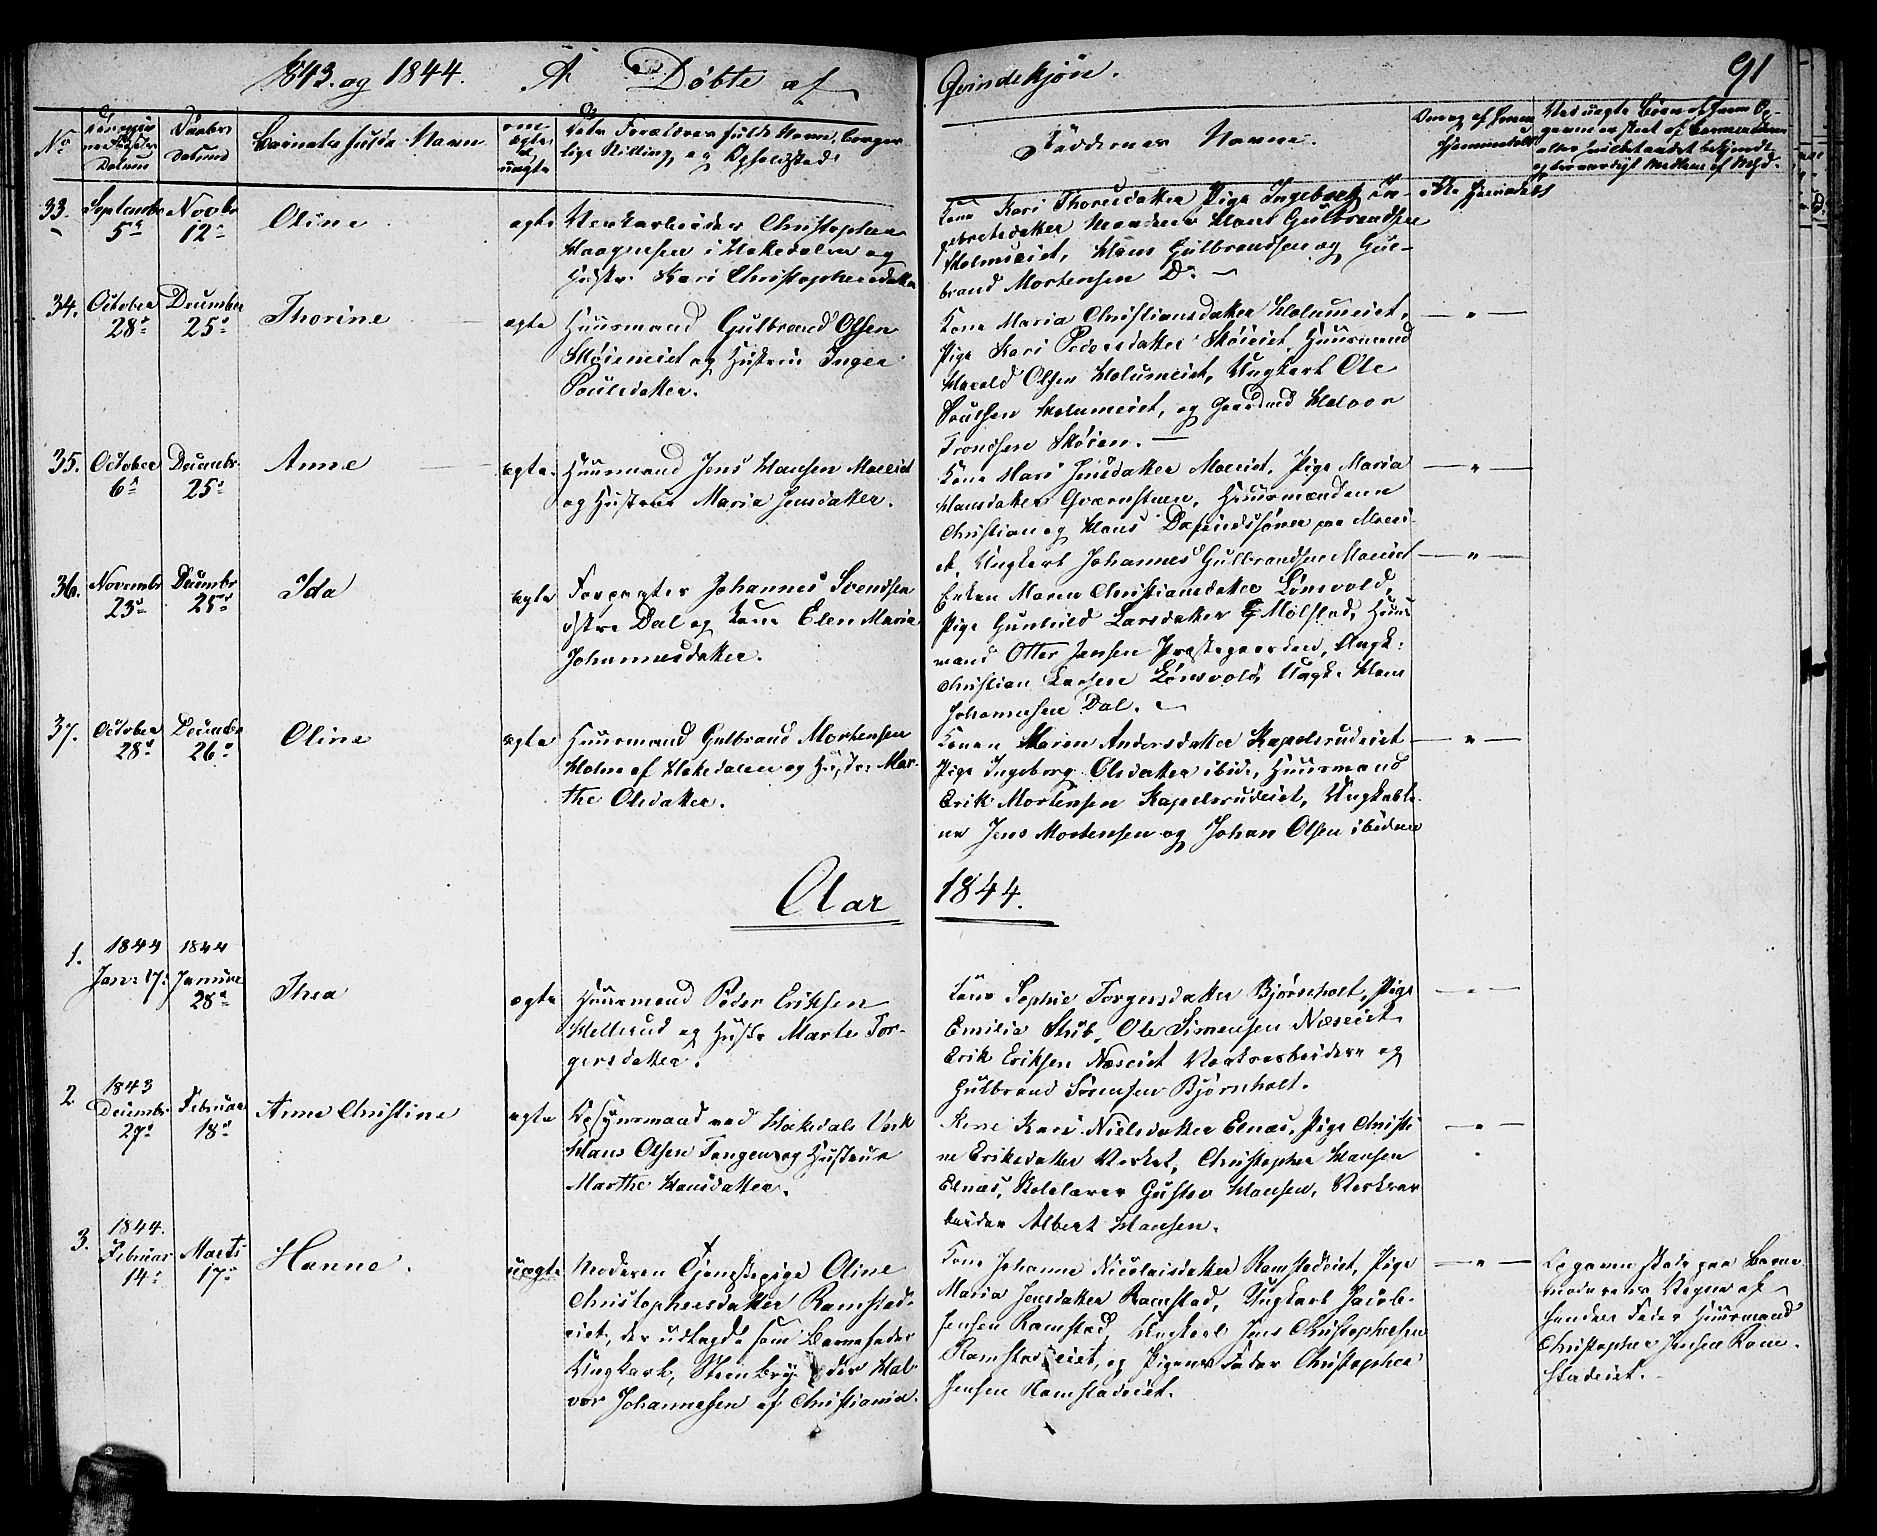 1843. og 1844. A. Døbte af Qvindekjøn. 91
No
Datum
Daabens Datum
Barnets fulde Navn
om ægte el uægte
Forældres fulde Navn, borgerlige Stilling og Opholdssted.
Faddernes Navne.
33. September 5te Novbr 12te Oline ægte
Værksarbeider Christopher
Haagensen i Hakedalen og
Hustr. Kari Christophersdatter
Kone Kari Thoresdatter Pige Ingeborg In-
gebretsdatter Mændene Hans Gulbrandsen
Holmseiet, Hans Gulbrandsen og Gul-
brand Mortensen Do
ikke hjemdøbt
34. October 28de December 25de Thorine ægte
Huusmand Gulbrand Olsen
Skøieneiet og Hustrue Inger
Poulsdatter.
Kone Maria Christiansdatter Holumeiet,
Pige Kari Pedersdatter Skøieiet, Huusmand
Harald Olsen Holumeiet, Ungkarl Ole
Poulsen Holumeiet, og Gaardmd Halvor
Trondsen Skøien.
— " —
35. October 6te Decembr. 25de Anne ægte.
Huusmand Jens Hansen Moeeiet
og Hustrue Maria Jensdatter.
Kone Mari Jensdatter Moeeiet, Pige Maria
Hansdatter Qværnstuen, Huusmændene
Christian og Hans Dafindssønner paa Moeei-
et, Ungkarl Johannes Gulbrandsen Moeeiet
— " —
— " —
36. Novembr 23de Decembr 25de Ida ægte
Forpagter Johannes Svendsen
østre Dal og Kone Elen Maria
Johannesdatter.
Enken Maren Christiansdatter Lønsvold,
Pige Gunhild Larsdatter Mølstad, Huus
mand Otter Jansen Præstegaarden, Ungk:
Christian Larsen Lønsvold, Ungk. Hans
Johannesen Dal.
37. October 28de December 26de Oline ægte
Huusmand Gulbrand Mortensen
Holm af Hakedalen og Hustr: Mar-
the Olsdatter.
Konen Maren Andersdatter Kapelsrudeiet
Pige Ingeborg Olsdatter ibid, Huusmand
Erik Mortensen Kapelsrudeiet, Ungkarle-
ne Jens Mortensen og Johan Olsen ibidem
— " —
Aar 1844.
1. 1844 Jan: 17. 1844 Januar 28de Thea ægte
Huusmand Peder Eriksen
Hellerud og Hustr Marte Tor-
gersdatter.
Kone Sophie Torgersdatter Bjørnholt, Pige
Emilie Stub, Ole Simensen Næseiet
Erik Eriksen Næseiet Værksarbeidere og
Gulbrand Sørensen Bjørnholt.
— " —
2 1843 Decembr 27de Februar 18de Anne Christine ægte
Opsynsmand ved Hakedals Værk
Hans Olsen Tangen og Hustrue
Marthe Hansdatter.
Kone Kari Nielsdatter Elnæs, Pige Christi
ne Eriksdatter Værket, Christopher Hansen
Elnæs, Skolelærer Gustav Hansen, Værksar
beider Albert Hansen.
— " —
3. 1844. Februar 14de Marts 17de Hanne. uægte
Moderen Tjenestepige Oline
Christophersdatter Ramstad-
eiet, der udlagde som Barnefader
Ungkarl, Steenbryder Hal
vor Johannesen af Christiania.
Kone Johanne Nicolaisdatter Ramstadeiet, Pige
Maria Jensdatter Ramstad, Ungkarl Jacob
Jensen Ramstad, Ungkarl Jens Christophersen
Ramstadeiet, og Pigens Fader Christopher
Jensen Ramstadeiet.
— " —
Opgaven skede paa Barne
moderens Vegne af
hendes Fader Huusmand
Christopher Jensen Ram-
stadeiet.